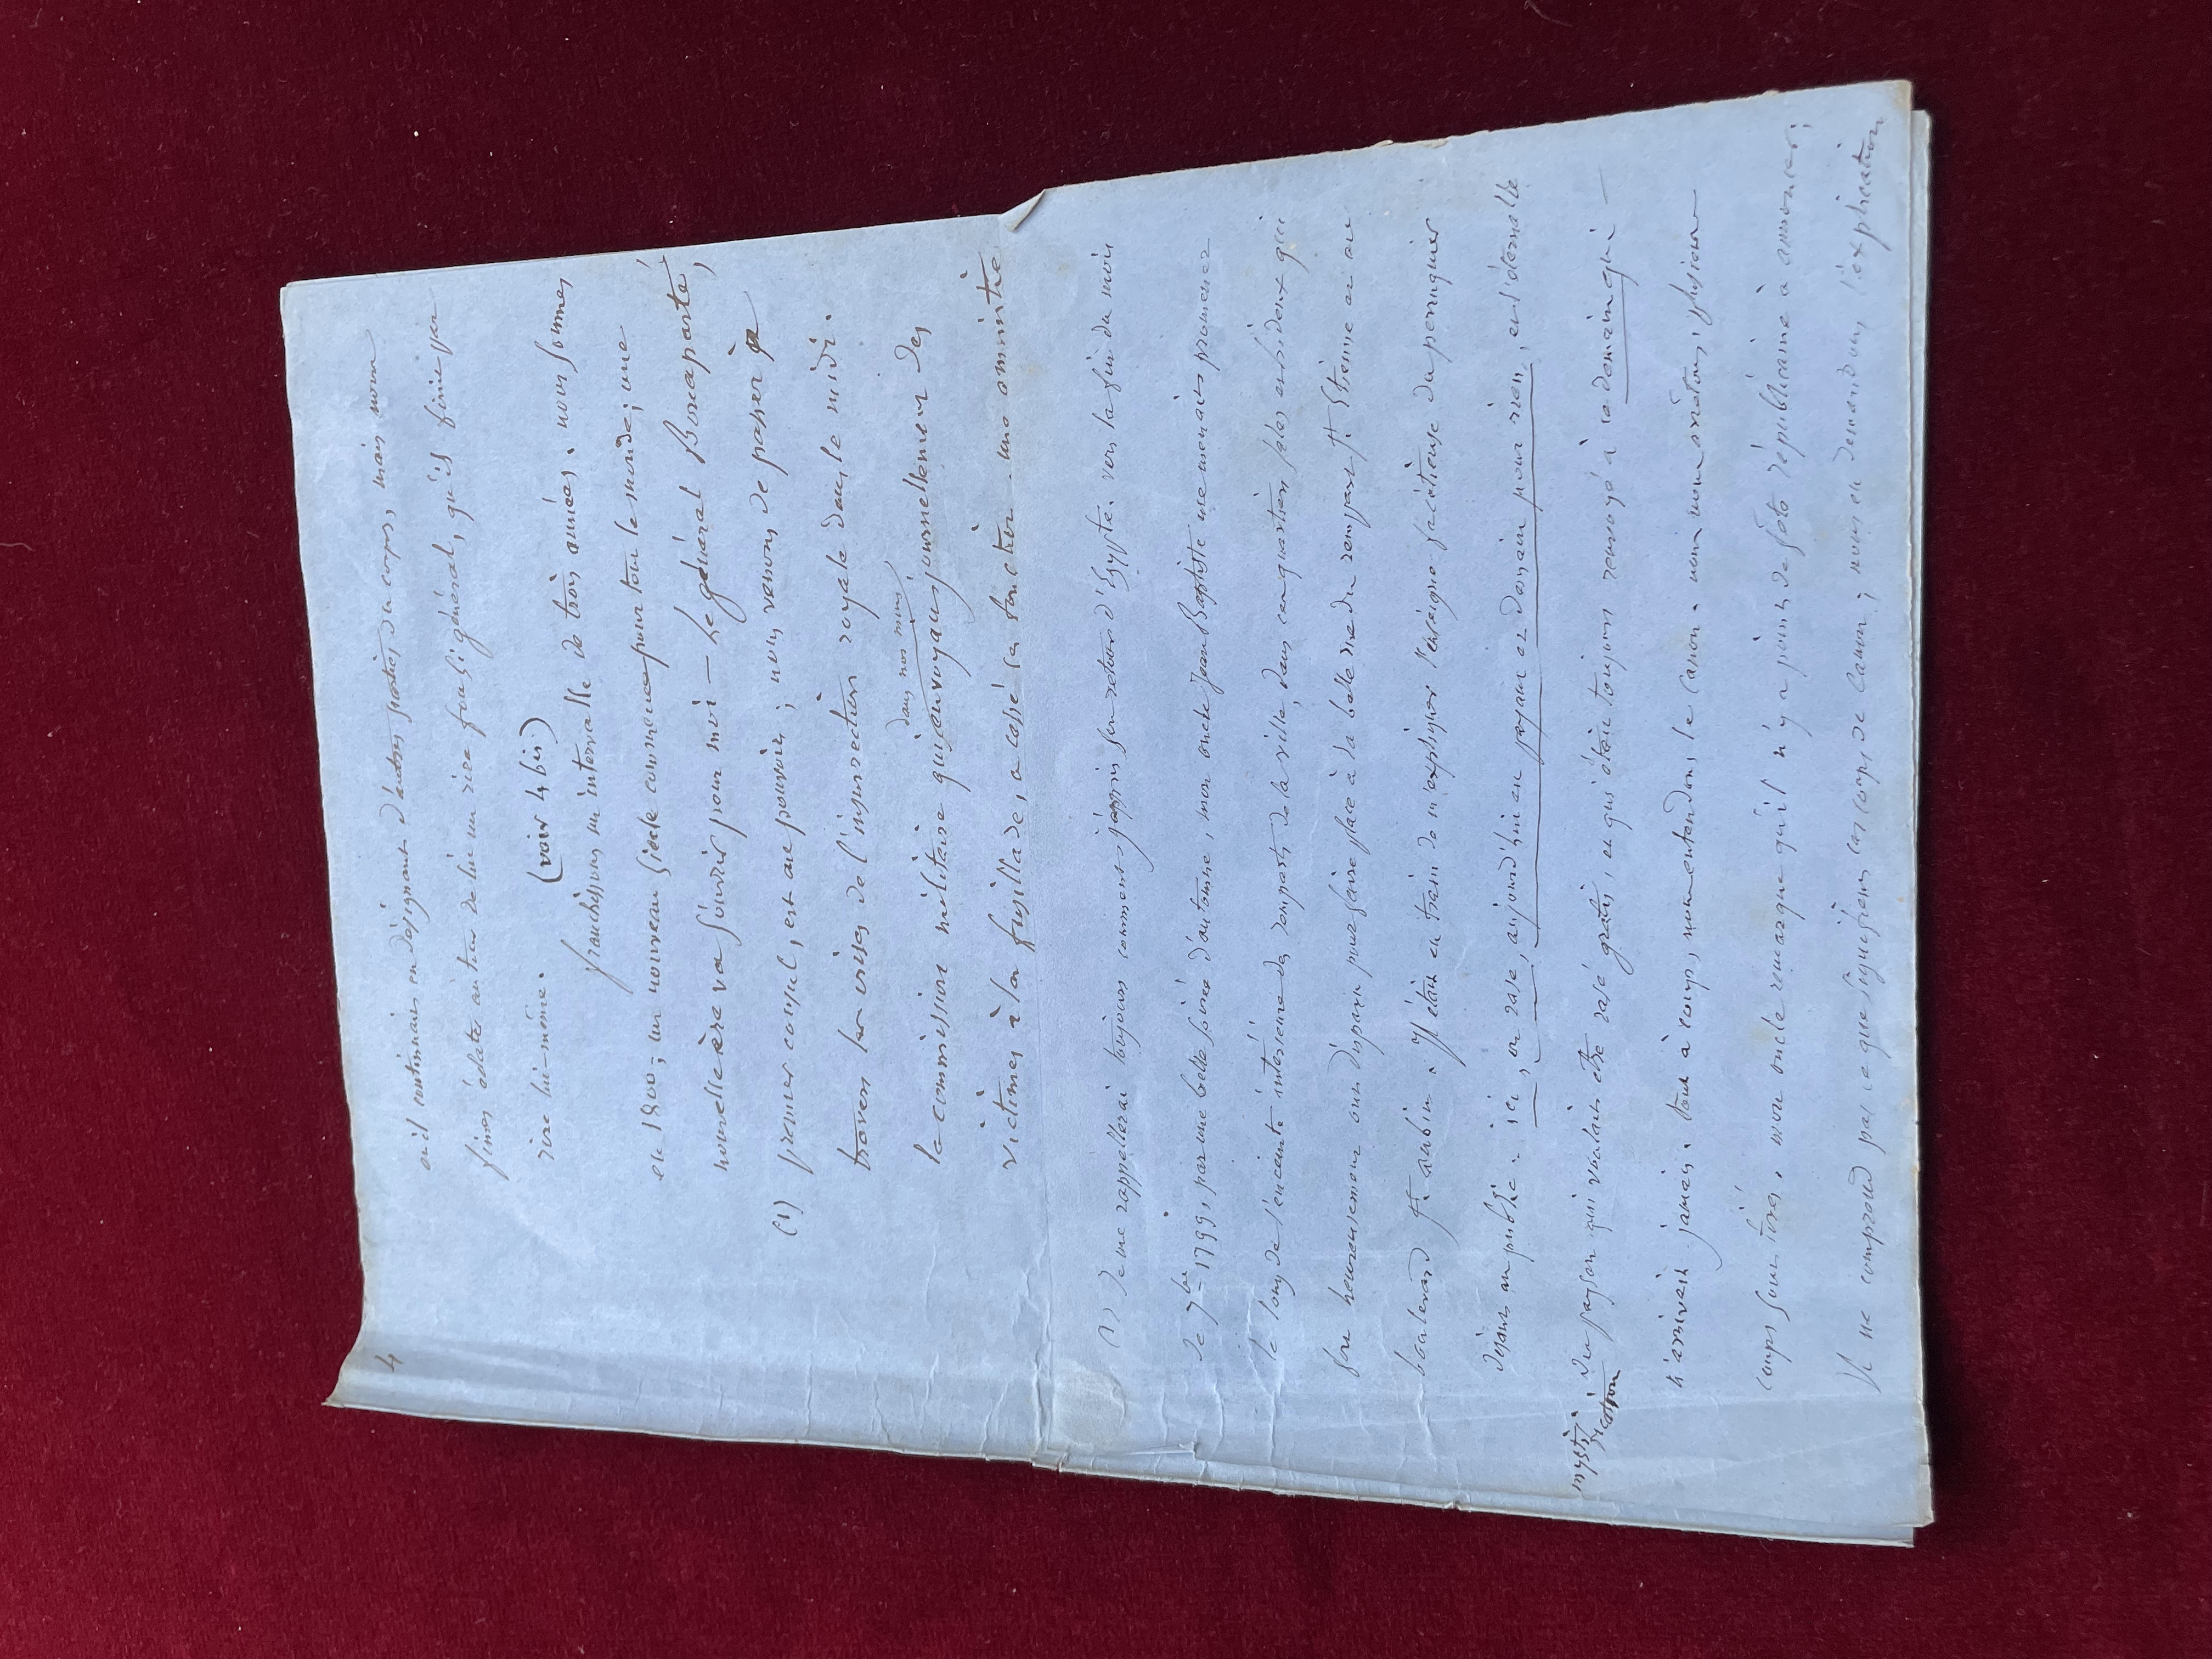 4
où il continuait en désignant d'autres parties du corps, mais nous
fimes éclater autour de lui un rire fou si général, qu'il finit par
rire lui-même.
(voir 4 bis)
franchissons un intervalle de trois années. nous sommes
en 1800; un nouveau siècle commence pour tout le monde; une
nouvelle ère va s'ouvrir pour moi — Le général Bonaparte,
(1) premier consul, est au pouvoir; nous venons de passer à
travers les crises de l'insurrection royale dans le midi.
dans nos murs
la commission militaire qui envoyait journellement des
victimes à la fusillade, a cessé ses fonctions. une amnistie
(1) Je me rappellerai toujours comment j'appris son retour d'Égypte. vers la fin du mois
de 7bre 1799, par une belle soirée d'automne, mon oncle Jean Baptiste me menait promener
le long de l'enceinte intérieure des remparts de la ville, dans ces quartiers sales et hideux qui
fort heureusement ont disparu pour faire place à la belle rue du rempart St. Etienne et au
boulevard St. aubin. Il était en train de m'expliquer l'enseigne facétieuse du perruquier
disant au public: ici, on rase, aujourd'hui en payant et demain pour rien, et l'éternelle
mysti-
fication
du gascon qui voulait être rasé gratis, et qui était toujours renvoyé à ce demain qui
n'arrivait jamais. tout à coup, nous entendons le canon. nous nous arrêtons; plusieurs
coups sont tirés. mon oncle remarque qu'il n'y a point de fête républicaine à annoncer;
Il ne comprend pas ce que signifient ces coups de canon; nous en demandons l'explication